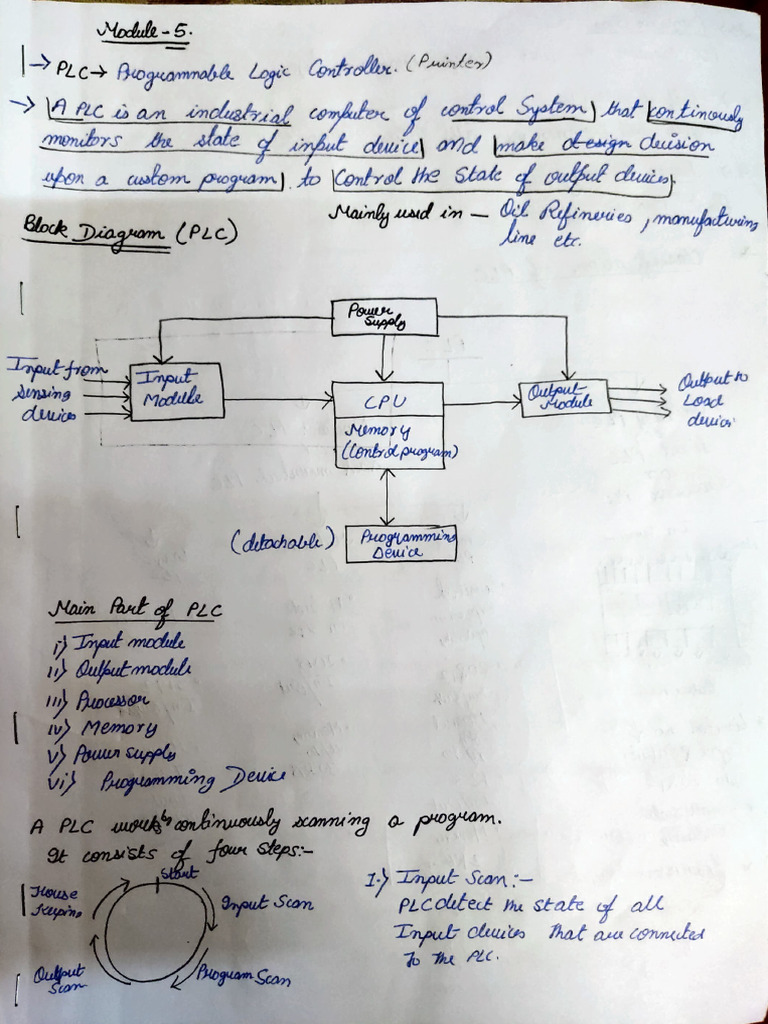 Module-5.
→ PLC → Programmable Logic Controller. (Printer)
→ A PLC is an industrial computer of control System that continously
monitors the state of input device and make design decision
upon a custom program to Control the State of output devices.
Mainly used in — Oil Refineries, manufacturing
line etc.
Block Diagram (PLC)
Power
Supply
Input from
sensing
devices
Input
Module
CPU
Memory
(Control program)
Output
Module
Output to
Load
device
(detachable)
Programming
Device
Main Part of PLC
i) Input module
ii) Output module
iii) Processor
iv) Memory
v) Power supply
vi) Programming Device
A PLC works by continuously scanning a program.
It consists of four steps:-
Start
House
Keeping
Input Scan
Output
Scan
Program Scan
1.) Input Scan:-
PLC detect the state of all
Input devices That are connected
To the PLC.